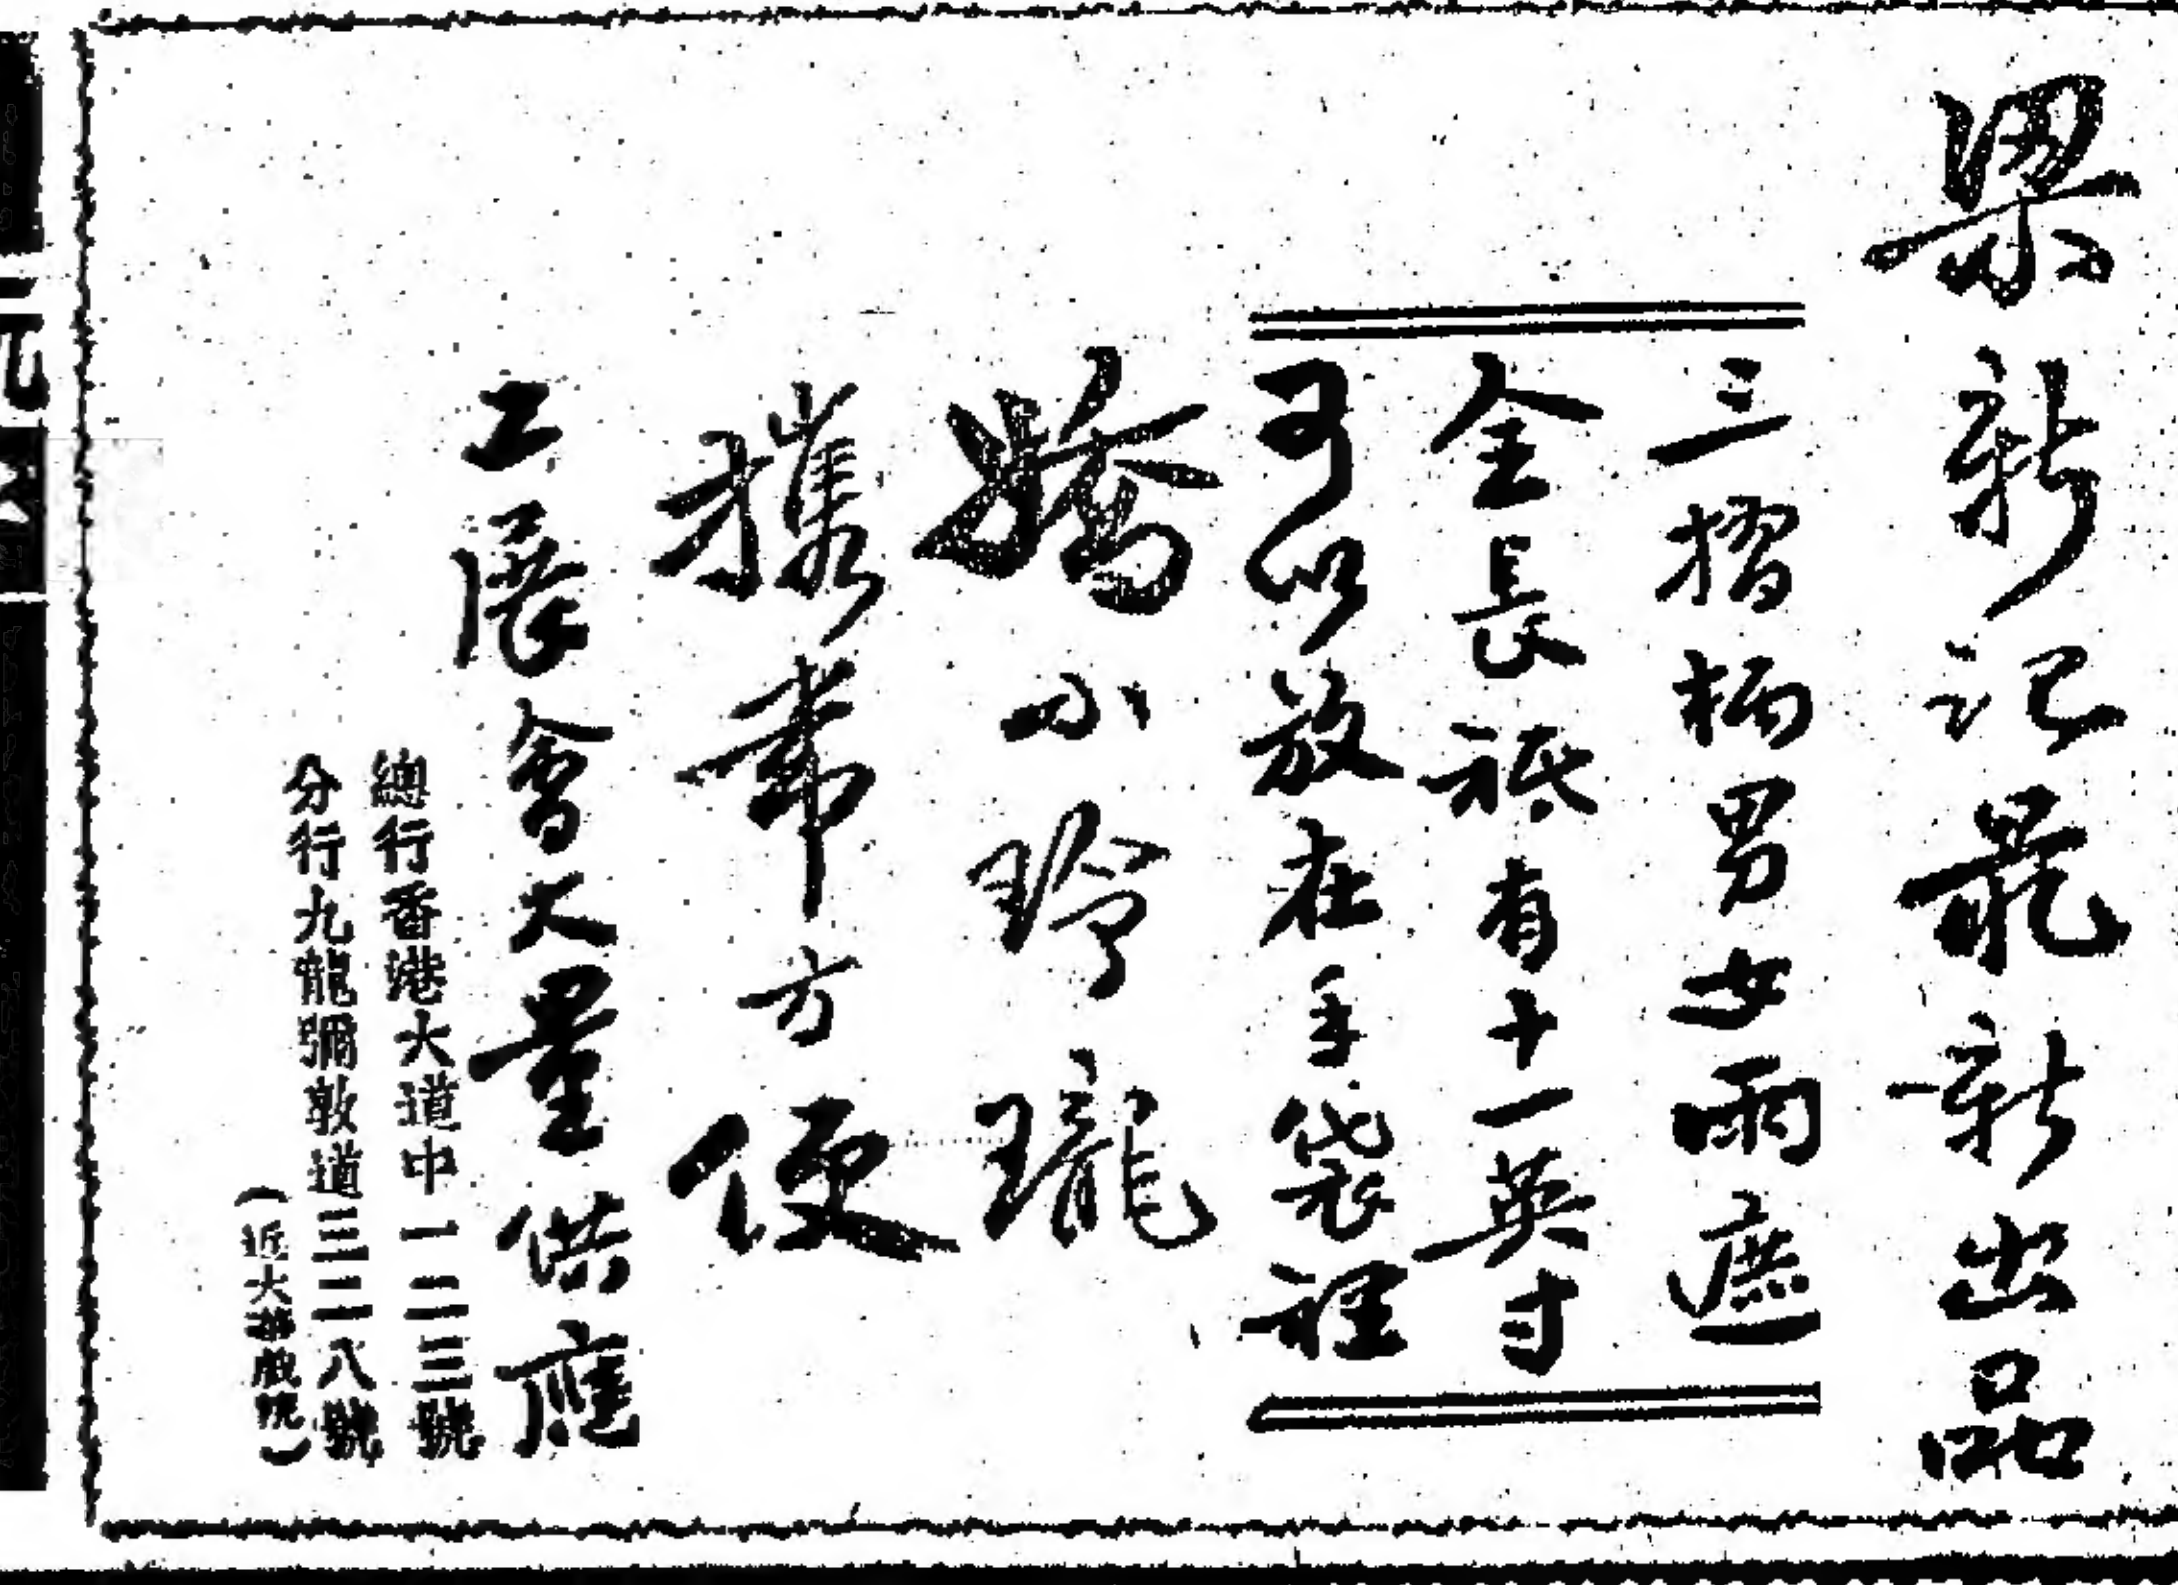 梁新記最新出品
三摺柄男女雨遮
全長祗有十一英寸
可以放在手袋裡
嬌小玲瓏
攜帶方便
工展會大量供應
總行香港大道中一二三號
分行九龍彌敦道三二八號
(近大華戲院)